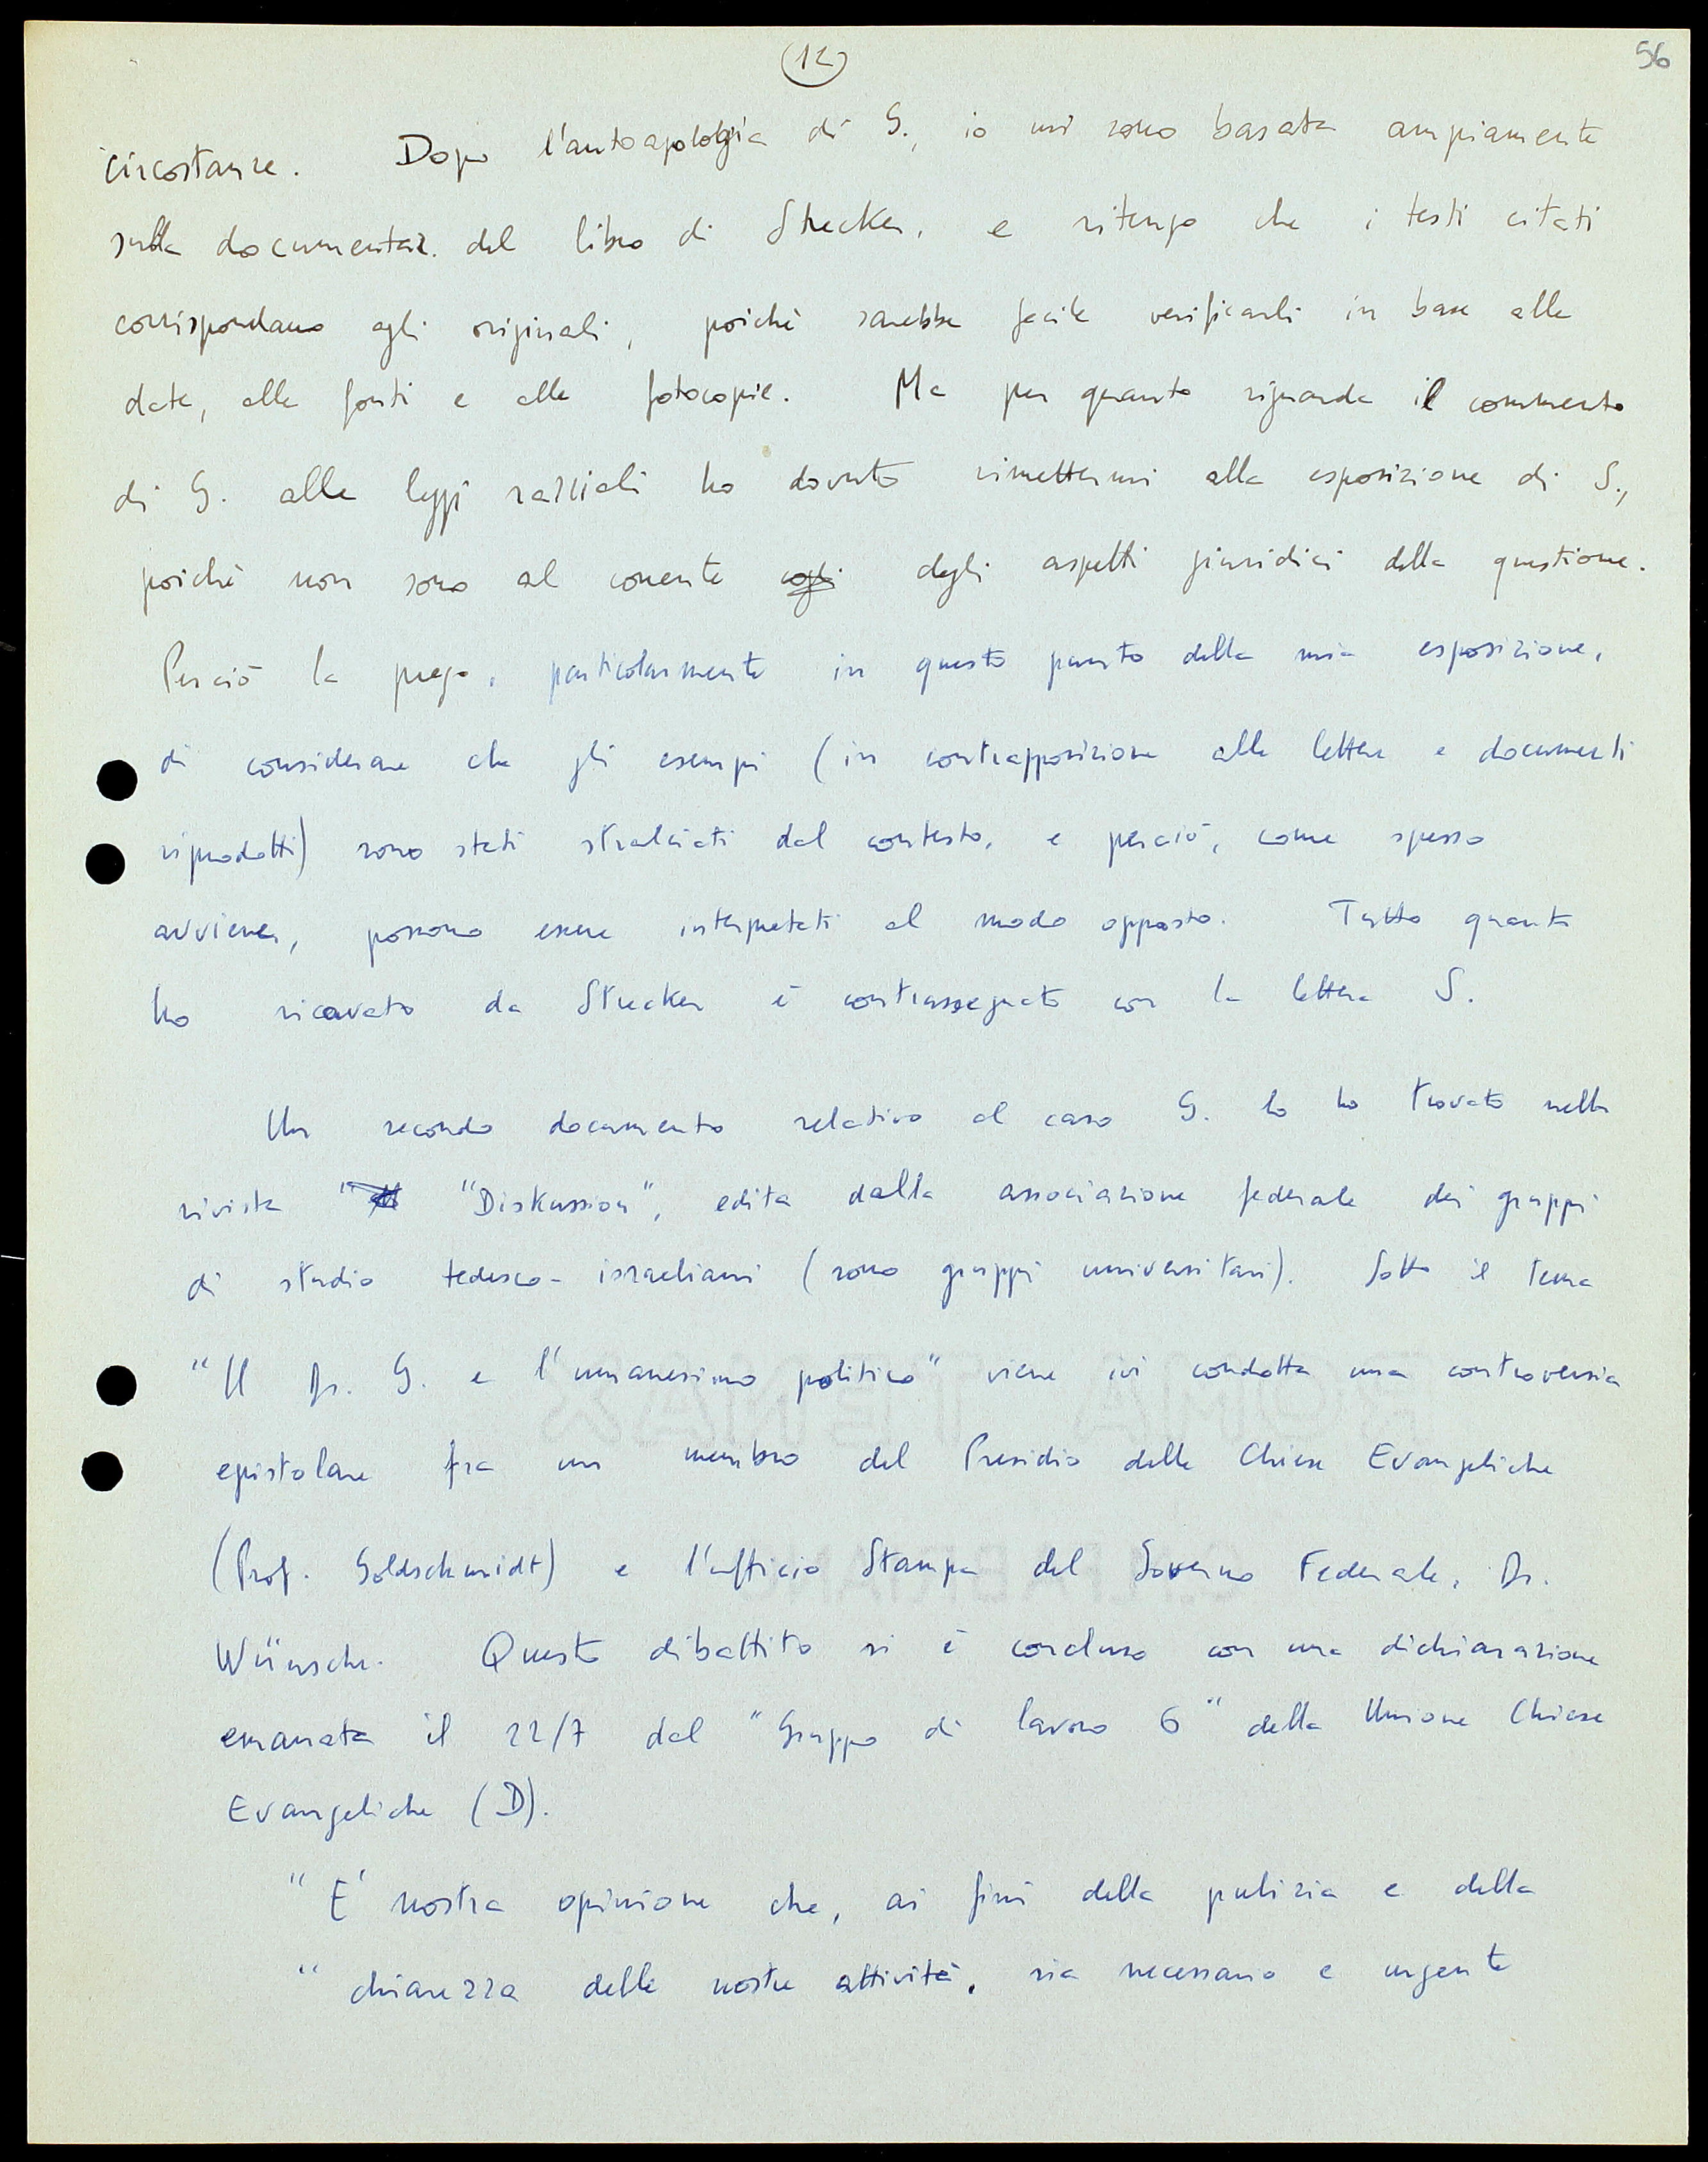 12
56
circostanze. Dopo l'autoapologia di G., io mi sono basata ampiamente
sulla documentaz. del libro di Strecker, e ritengo che i testi citati
corrispondano agli originali, poiché sarebbe facile verificarli in base alle
date, alle fonti e alle fotocopie. Ma per quanto riguarda il commento
di G. alle leggi razziali ho dovuto rimettermi alla esposizione di S.,
poiché non sono al corrente degli aspetti giuridici della questione.
Perciò la prego, particolarmente in questo punto della mia esposizione,
di considerare che gli esempi (in contrapposizione alle lettere e documenti
riprodotti) sono stati stralciati dal contesto, e perciò, come spesso
avviene, possono essere interpretati al modo opposto. Tutto quanto
ho ricavato da Strecker è contrassegnato con la lettera S.
Un secondo documento relativo al caso G. lo ho trovato nella
rivista "Diskussion", edita dalla associazione federale dei gruppi
di studio tedesco-israeliani (sono gruppi universitari). Sotto il tema
"Il Dr. G. e l'umanesimo politico" viene ivi condotta una controversia
epistolare fra un membro del Presidio delle Chiese Evangeliche
(Prof. Goldschmidt) e l'ufficio Stampa del Governo Federale, Dr.
Wünsche. Questo dibattito si è concluso con una dichiarazione
emanata il 22/7 dal "Gruppo di lavoro 6" della Unione Chiese
Evangeliche (D).
"E' nostra opinione che, ai fini della pulizia e della
"chiarezza delle nostre attività, sia necessario e urgente